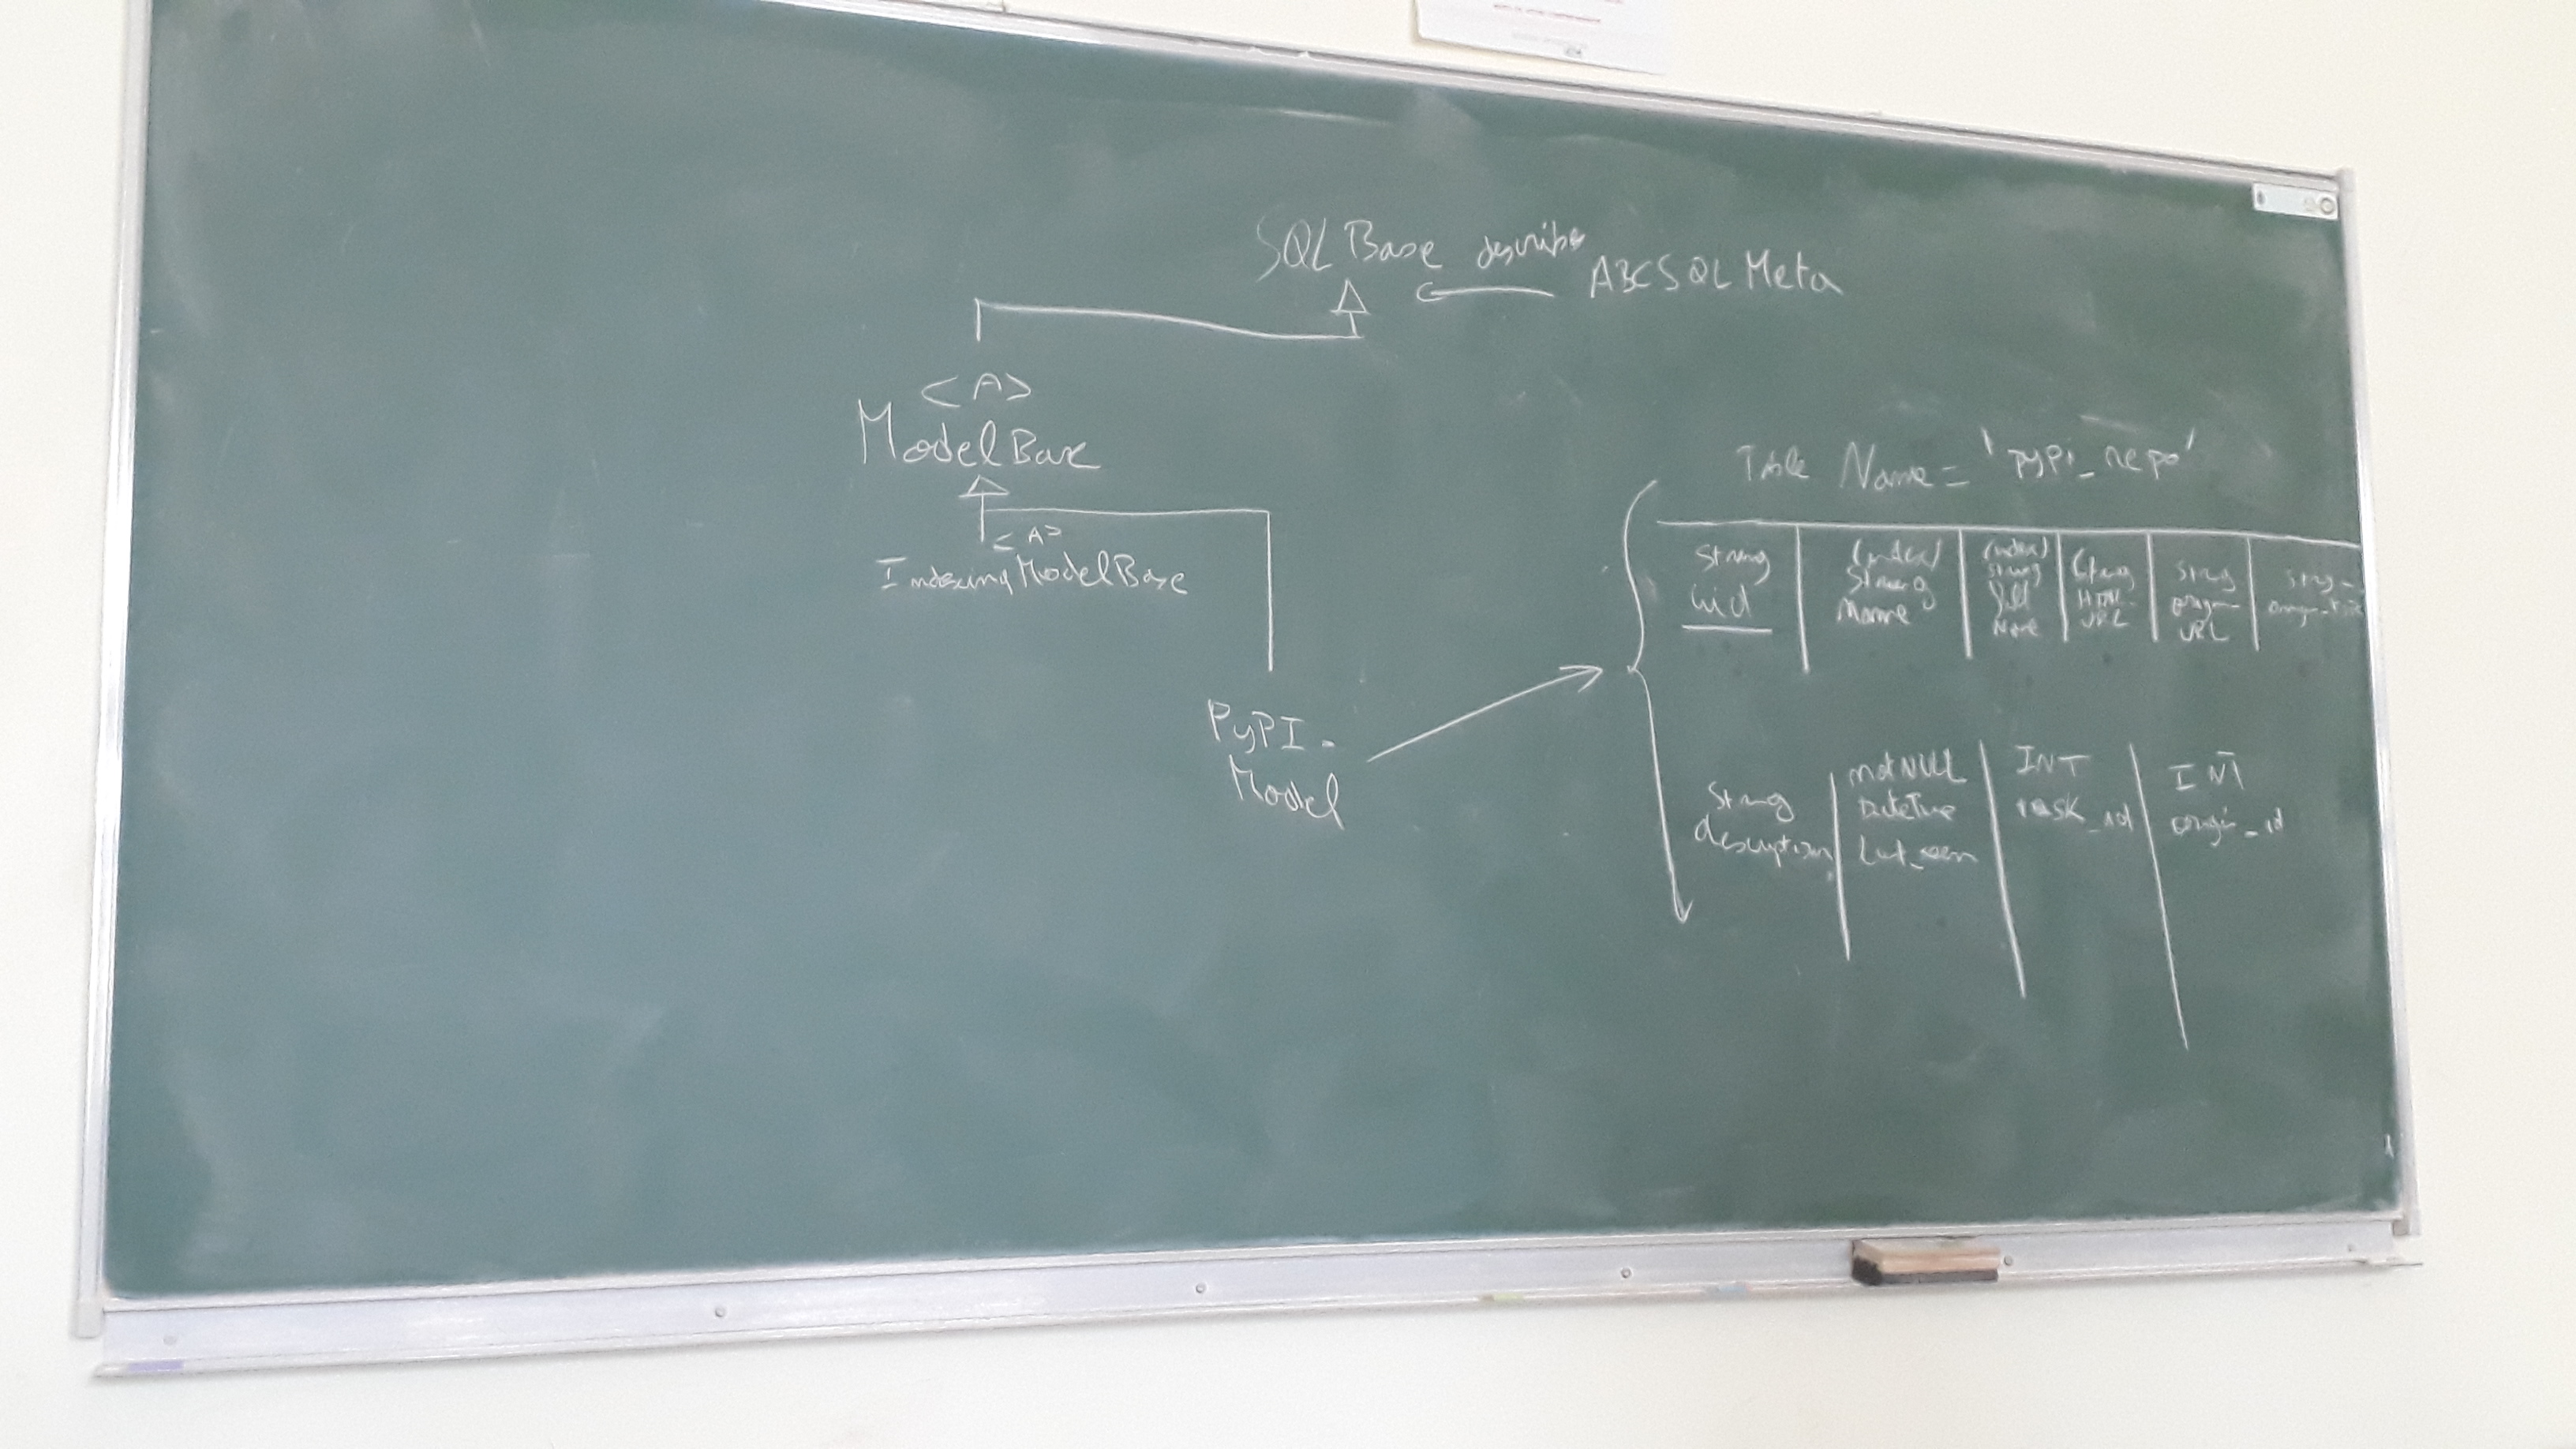 SQL Base describes
ABCSQLMeta
<A>
ModelBase
<A>
IndexingModelBase
PyPI-
Model
Table Name = 'pypi_repo'
String
uid
(index)
String
Name
(index)
String
full
Name
String
HTML-
URL
String
origin-
URL
String
String
description
notNULL
DateTime
last_seen
INT
task_id
INT
origin_id